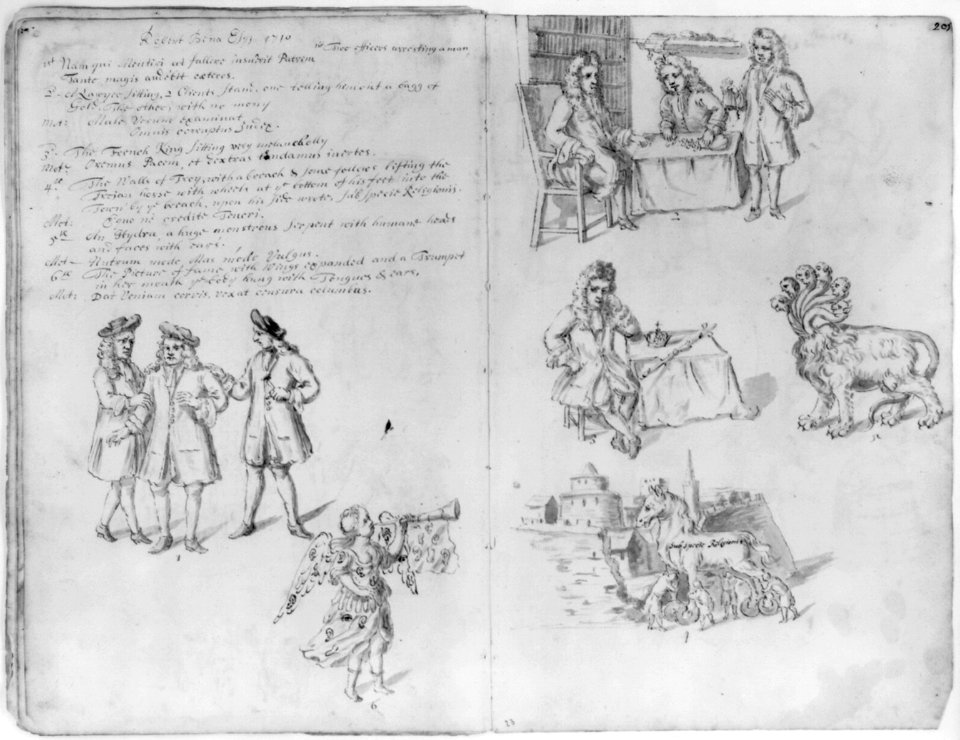 Robert Bend Esqr. 1710
1st Two officers arresting a man
Mot Nam qui Mentiri aut fallere insuerit Patrem
Tanto magis audebit cæteros.
2. A Lawyer sitting, 2 Clients stand, one telling him out a bagg of
Gold, The other, with no mony
Mot: Male Verum examinat
Omnis corruptus Judex.
3. The French King sitting very melancholly
Mot: Oremus Pacem, et dextras tendamus inertes.
4th The Walls of Troy, with a breach & some souldiers lifting the
Trojan horse with wheels at ye bottom of his feet, into the
Town by ye breach, upon his side wrote, Sub specie Religionis.
Mot: Equo ne credite Teucri.
5th An Hydra, a huge monstrous Serpent with humane heads
and faces with ears.
Mot - Nutrum modo, Mas modo Vulgus.
6th The Picture of fame with Wings expanded and a Trumpet
in her mouth ye body hung with Tongues & ears,
Mot: Dat Veniam corvis, vexat censura columbas.
205
2
3
5
Sub specie Religionis
1
6
23